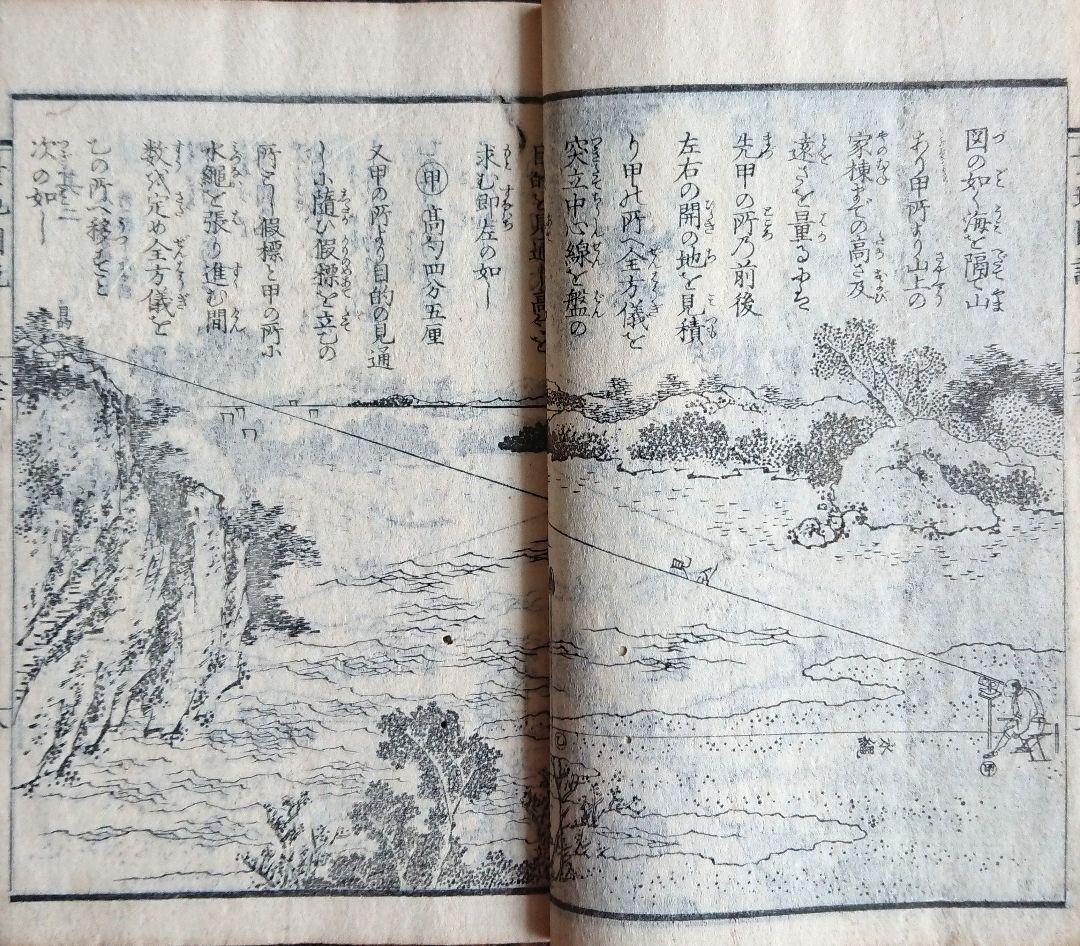 図の如く海を隔て山
あり甲所より山上の
家棟までの高さ及
遠さを量るには
先甲の所乃前後
左右の開の地を見積
り甲の所へ全方儀を
突立中心線を盤の
目的を見通し高さを
求む即左の如し
甲 高勾四分五厘
又甲の所より目的の見通
しに随ひ假標を立乙の
所とし假標と甲の所に
水縄を張り進む間
数を定め全方儀を
乙の所へ移すこと
次の如し
見
乙
甲